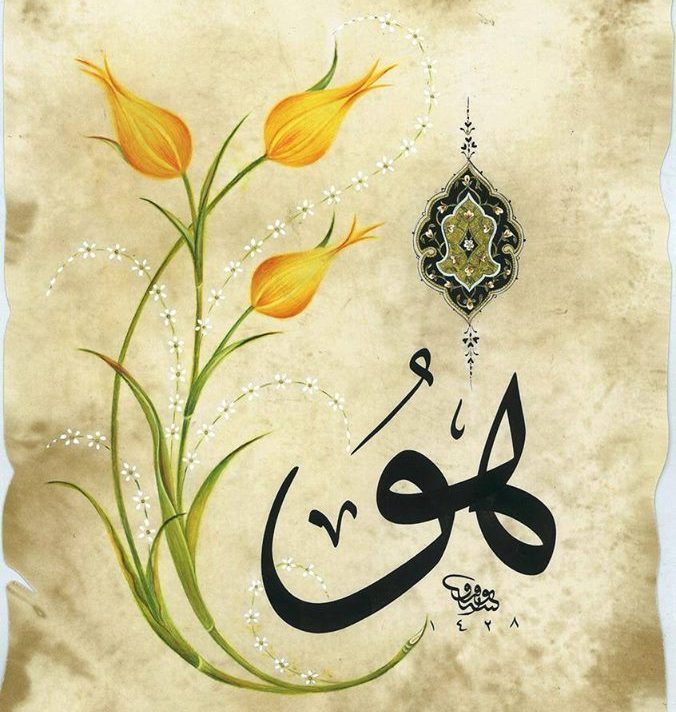 هُو
١٤٢٨